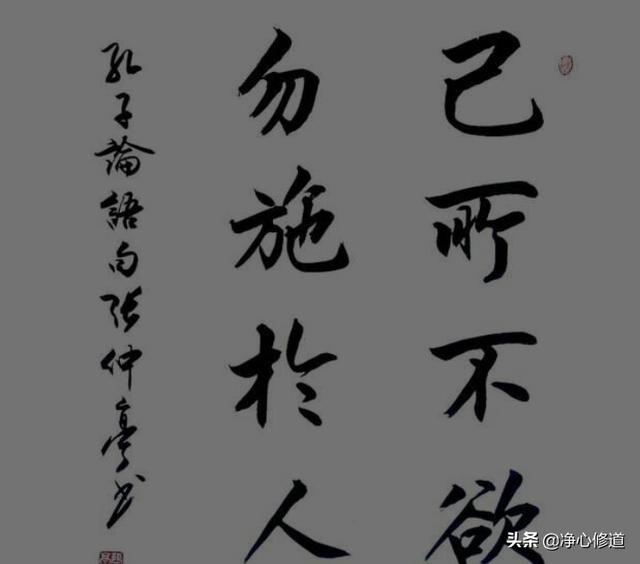 己所不欲
勿施於人
孔子論語句張仲亭書
头条@净心修道